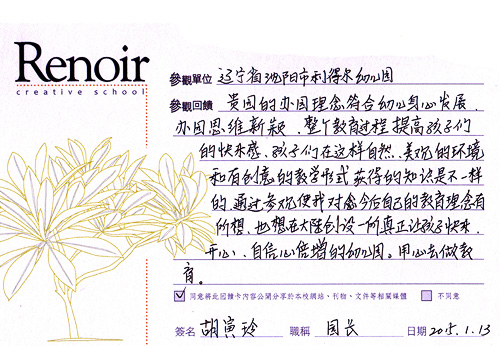 Renoir
creative school
參觀單位 辽宁省沈阳市利得尔幼儿园
參觀回饋 贵园的办园理念符合幼儿身心发展,
办园思维新颖、整个教育过程提高孩子们
的快乐感、孩子们在这样自然、美观的环境
和有创意的教学形式获得的知识是不一样
的,通过参观使我对今后自己的教育理念有
所想、也想在大陆创设一所真正让孩子快乐、
开心、自信心倍增的幼儿园。用心去做教
育。
同意將此回饋卡內容公開分享於本校網站、刊物、文件等相關媒體 不同意
簽名 胡寅玲 職稱 园长 日期 2015.1.13